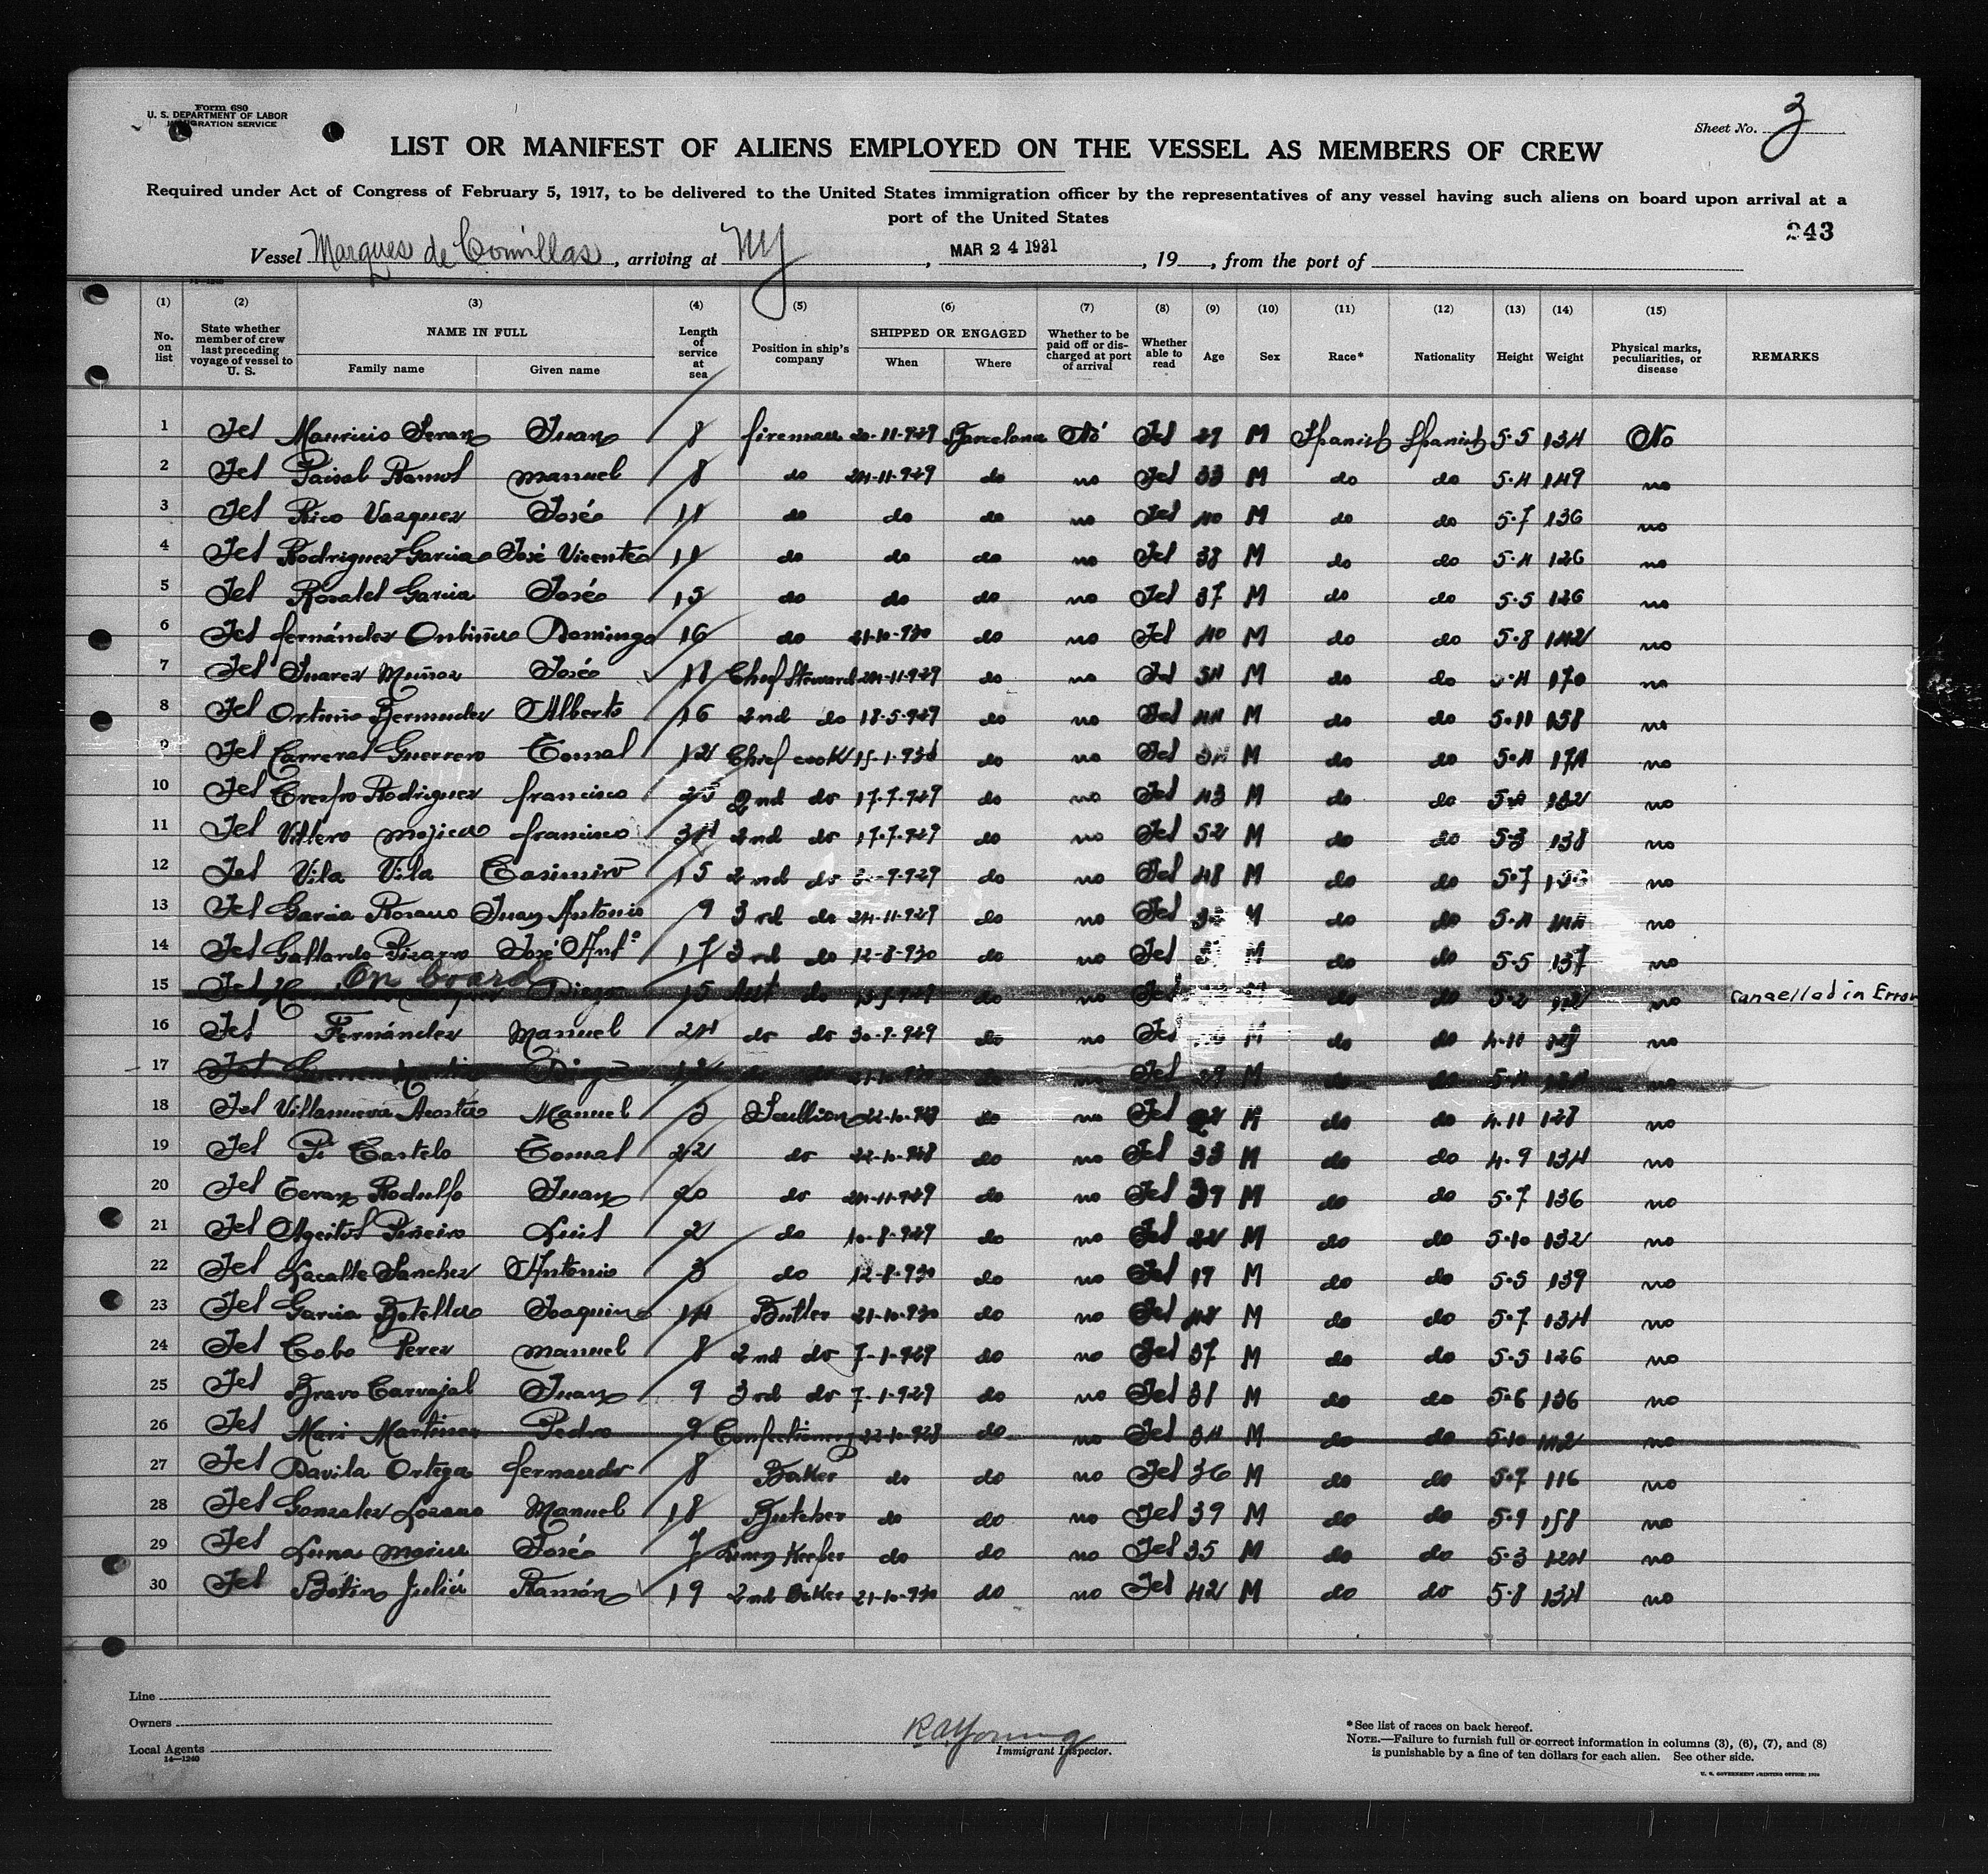 Form 680
U. S. DEPARTMENT OF LABOR
IMMIGRATION SERVICE
Sheet No. 3
LIST OR MANIFEST OF ALIENS EMPLOYED ON THE VESSEL AS MEMBERS OF CREW
Required under Act of Congress of February 5, 1917, to be delivered to the United States immigration officer by the representatives of any vessel having such aliens on board upon arrival at a
port of the United States
243
Vessel Marques de Comillas, arriving at NY, MAR 24 1931, 19, from the port of
(1) (2) (3) (4) (5) (6) (7) (8) (9) (10) (11) (12) (13) (14) (15)
No. on list State whether member of crew last preceding voyage of vessel to U. S. NAME IN FULL Family name Given name Length of service at sea Position in ship's company SHIPPED OR ENGAGED When Where Whether to be paid off or discharged at port of arrival Whether able to read Age Sex Race* Nationality Height Weight Physical marks, peculiarities, or disease REMARKS
1 Yes Mauricio Juan 8 fireman 20-11-929 Barcelona No Yes 29 M Spanish Spanish 5.5 134 No
2 Yes Ramos manuel 8 do 24-11-929 do no Yes 33 M do do 5.4 149 no
3 Yes Rico Vazquez José 11 do do do no Yes 40 M do do 5.7 136 no
4 Yes Rodriguez Garcia José Vicente 11 do do do no Yes 38 M do do 5.4 126 no
5 Yes Rosales Garcia José 15 do do do no Yes 37 M do do 5.5 126 no
6 Yes fernández Domingo 16 do 21-10-930 do no Yes 40 M do do 5.8 142 no
7 Yes Suarez Muñoz José 18 Chief Steward 24-11-929 do no Yes 54 M do do 170 no
8 Yes Ortuño Bermudez Alberto 16 2nd do 18-5-929 do no Yes 44 M do do 5.11 158 no
9 Yes Carreras Guerrero Tomas 12 Chief cook 15-1-930 do no Yes M do do 5.4 174 no
10 Yes Crespo Rodriguez francisco 25 2nd do 17-7-929 do no Yes 43 M do do 5.4 132 no
11 Yes Villero mojica francisco 34 2nd do 17-7-929 do no Yes 52 M do do 5.3 138 no
12 Yes Vila Vila Casimiro 15 2nd do do no Yes 48 M do do 5.7 no
13 Yes Garcia Rosano Juan Antonio 9 3rd do 24-11-929 do no Yes M do do 5.4 144 no
14 Yes Gallardo Pizarro José Antº 17 3rd do 12-8-930 do no Yes M do do 5.5 137 no
On board
15 Yes Diego 15 do do no Yes do do 5.2 no Cancelled in Error
16 Yes Fernández Manuel 24 do do 30-7-929 do no Yes M do do 4.11 no
17 Yes Guerrero Diego do do 21-10-930 do no Yes 29 M do do 5.4 134 no
18 Yes Villanueva Acosta Manuel 3 Scullion do no Yes 22 M do do 4.11 128 no
19 Yes Pi Castelo Tomas 22 do 22-10-928 do no Yes 33 M do do 4.9 134 no
20 Yes Teran Rodulfo Juan 20 do 24-11-929 do no Yes 39 M do do 5.7 136 no
21 Yes Ageitos Piñeiro Luis 2 do 10-8-929 do no Yes 22 M do do 5.10 132 no
22 Yes Lacalle Sanchez Antonio 3 do 12-8-930 do no Yes 19 M do do 5.5 139 no
23 Yes Garcia Botella Joaquin 14 Butler 21-10-930 do no Yes 48 M do do 5.7 134 no
24 Yes Cobo Perez manuel 8 2nd do 7-1-929 do no Yes 37 M do do 5.5 126 no
25 Yes Bravo Carvajal Juan 9 3rd do 7-1-929 do no Yes 38 M do do 5.6 136 no
26 Yes Mari Martinez Pedro 9 Confectionery 22-10-928 do no Yes 34 M do do 5.10 142 no
27 Yes Davila Ortega fernando 8 Baker do do no Yes 36 M do do 5.7 116 no
28 Yes Gonzalez Lozano Manuel 18 Butcher do do no Yes 39 M do do 5.9 158 no
29 Yes Luna José 7 Keeper do do no Yes 35 M do do 5.3 124 no
30 Yes Botin Juliá Ramón 19 2nd Baker 21-10-930 do no Yes 42 M do do 5.8 134 no
Line
Owners
Local Agents
14—1240
R A Young
Immigrant Inspector.
*See list of races on back hereof.
NOTE.—Failure to furnish full or correct information in columns (3), (6), (7), and (8)
is punishable by a fine of ten dollars for each alien. See other side.
U. S. GOVERNMENT PRINTING OFFICE: